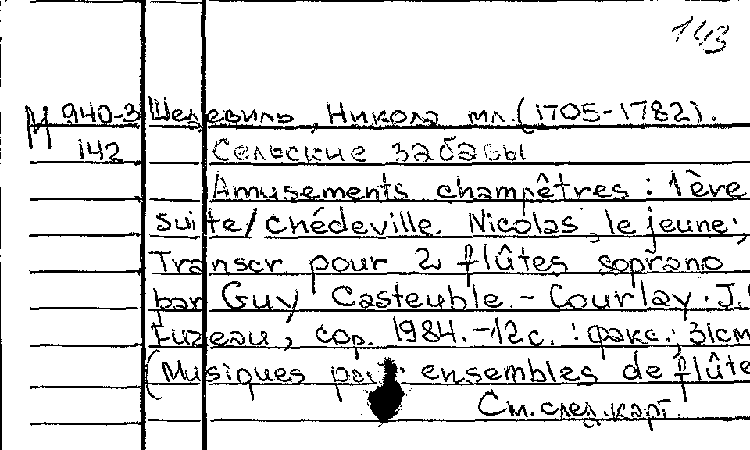 143
М 940-3 Шедевиль, Никола мл. (1705-1782).
142 Сельские забавы
Amusements champêtres : 1ère
suite/Chédeville, Nicolas, le jeune;
Transcr pour 2 flûtes soprano
par Guy Casteuble. - Courlay: J.
Fuzeau, cop. 1984. - 12 с. : факс.; 31см
(Musiques pour ensembles de flûte
См. след. карт.